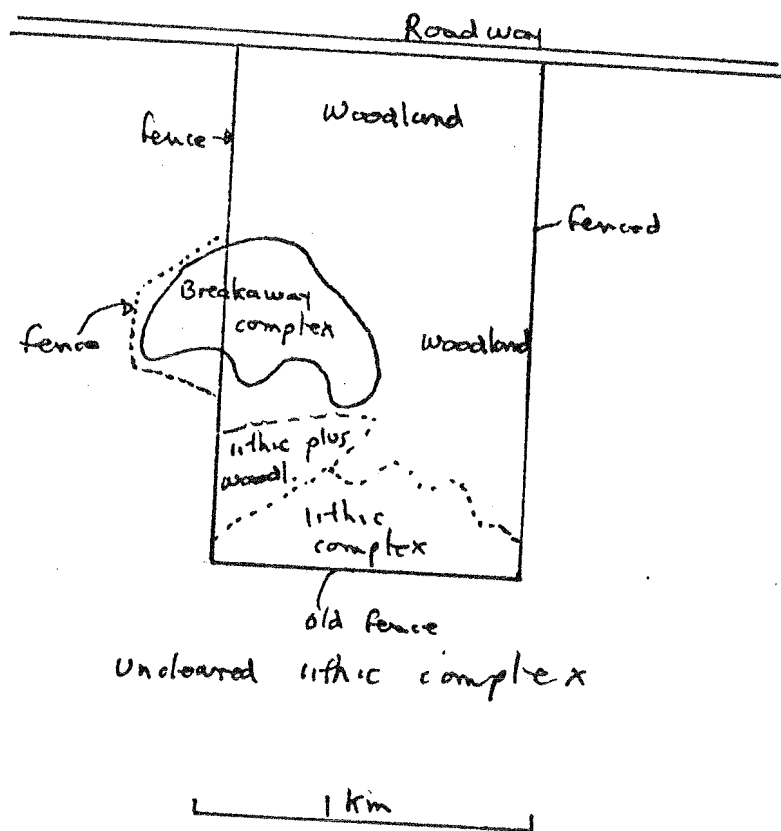 Roadway
Woodland
fence
fenced
Breakaway
complex
fence
Woodland
lithic plus
woodl.
lithic
complex
old fence
Uncleared lithic complex
1 km